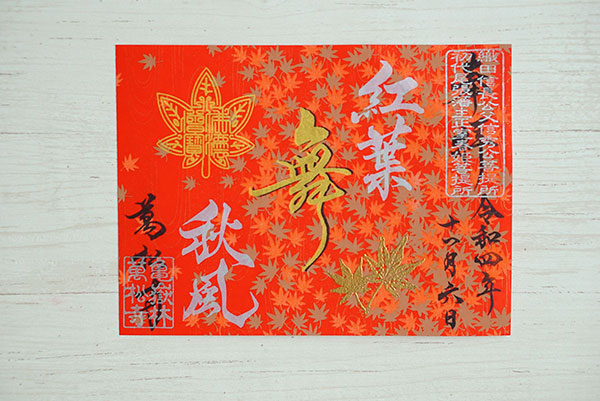 織田信長公父信秀公菩提所
初代尾張藩主正室春姫菩提所
令和四年
十一月六日
紅葉
舞
秋風
萬松寺
亀嶽林
萬松寺